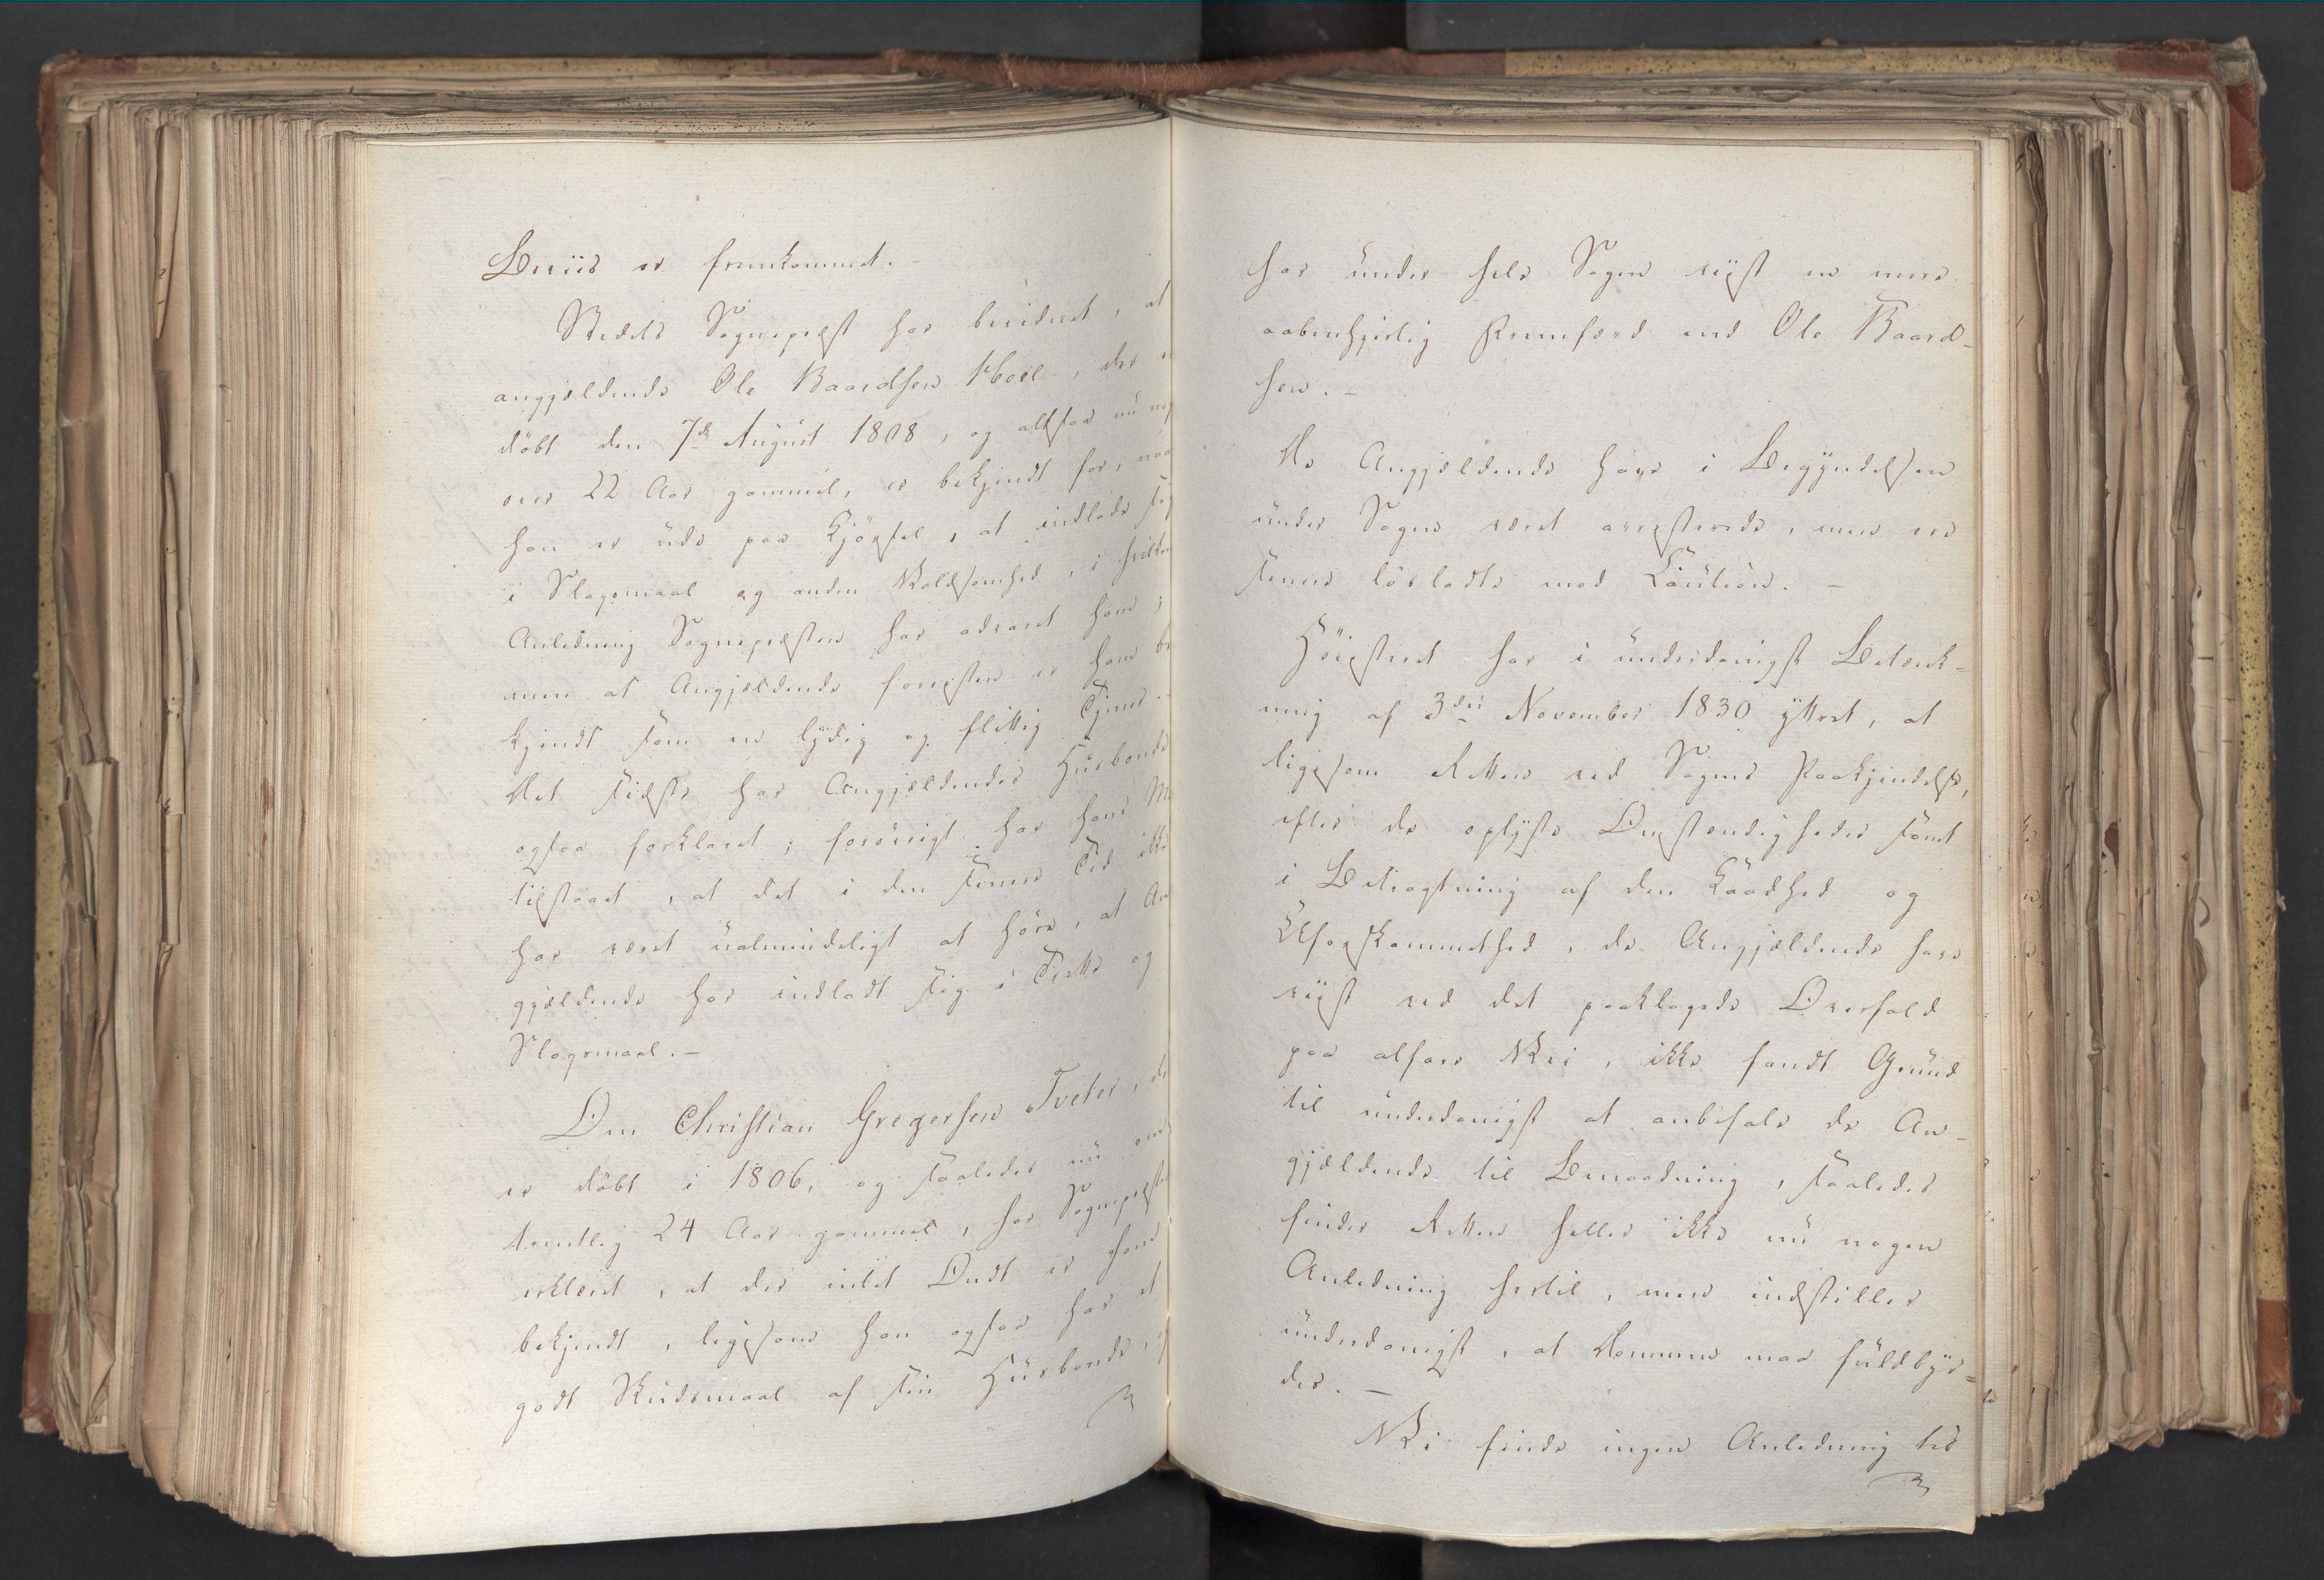 Beviis er fremkommet. —
Stedets Sognepræst har bevidnet, at
angjældende Ole Baardsen Moel, der er
döbt den 7de August 1808, og altsaa nu
over 22 Aar gammel, er bekjendt for, naar
han er ude paa Kjörsel, at indlade sig
i Slagsmaal og anden Voldsomhed, i hvilken
Anledning Sognepræsten har advaret ham;
men at Angjældende forresten er ham be
kjendt som en lydig og flittig Tjener. —
Det sidste har Angjældendes Huusbonde
ogsaa forklaret; forövrigt har hans M
tilstaaet, at det i den senere Tid ikke
har været ualmindeligt at höre, at An
gjældende har indladt sig i Trette og
Slagsmaal. —
Om Christian Gregersen Tveter, der
er döbt i 1806, og saaledes nu om
trentlig 24 Aar gammel, har Sognepræsten
erklæret, at der intet Ondt er ham
bekjendt, ligesom han ogsaa har et
godt Skudsmaal af sin Huusbonde, og
har under hele Sagen viist en mere
aabenhjertig Fremfærd end Ole Baard-
sen. —
De Angjældende have i Begyndelsen
under Sagen været arresterede, men ere
senere lösladte mod Caution. —
Höiesteret har i underdanigst Betænk=
ning af 3die November 1830 yttret, at
ligesom Retten ved Sagens Paakjendelse,
efter de oplyste Omstændigheder samt
i Betragtning af den Kaadhed og
Uforskammethed, de Angjældende have
viist ved det paaklagede Overfald
paa alfare Vei, ikke fandt Grund
til underdanigst at anbefale de An-
gjældende til Benaadning, saaledes
finder Retten heller ikke nu nogen
Anledning hertil, men indstiller
underdanigst, at Dommen maa fuldbyr=
des. —
Vi finde ingen Anledning til